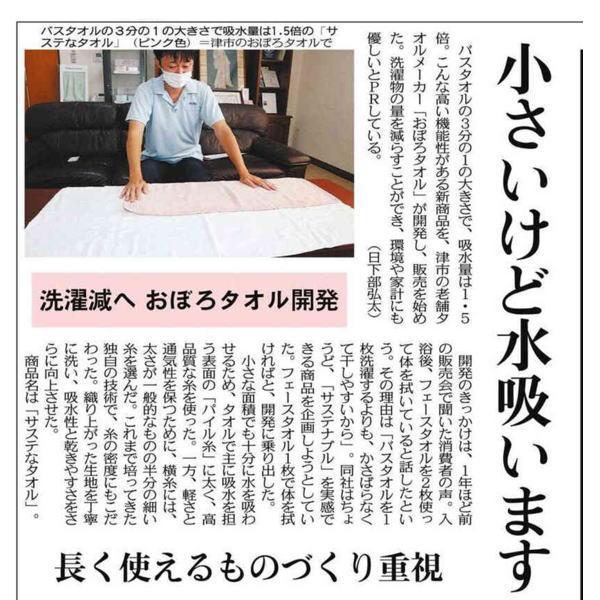 バスタオルの３分の１の大きさで吸水量は1.5倍の「サ
ステなタオル」（ピンク色）＝津市のおぼろタオルで
小さいけど水吸います
バスタオルの３分の１の大きさで、吸水量は１・５
倍。こんな高い機能性がある新商品を、津市の老舗タ
オルメーカー「おぼろタオル」が開発し、販売を始め
た。洗濯物の量を減らすことができ、環境や家計にも
優しいとＰＲしている。
（日下部弘太）
洗濯減へ おぼろタオル開発
開発のきっかけは、１年ほど前
の販売会で聞いた消費者の声。入
浴後、フェースタオルを２枚使っ
て体を拭いていると話したとい
う。その理由は「バスタオルを１
枚洗濯するよりも、かさばらなく
て干しやすいから」。同社はちょ
うど、「サステナブル」を実感で
きる商品を企画しようとしてい
た。フェースタオル１枚で体を拭
ければと、開発に乗り出した。
小さな面積でも十分に水を吸わ
せるため、タオルで主に吸水を担
う表面の「パイル糸」に太く、高
品質な糸を使った。一方、軽さと
通気性を保つために、横糸には、
太さが一般的なものの半分の細い
糸を選んだ。これまで培ってきた
独自の技術で、糸の密度にもこだ
わった。織り上がった生地を丁寧
に洗い、吸水性と乾きやすさをさ
らに向上させた。
商品名は「サステなタオル」。
長く使えるものづくり重視